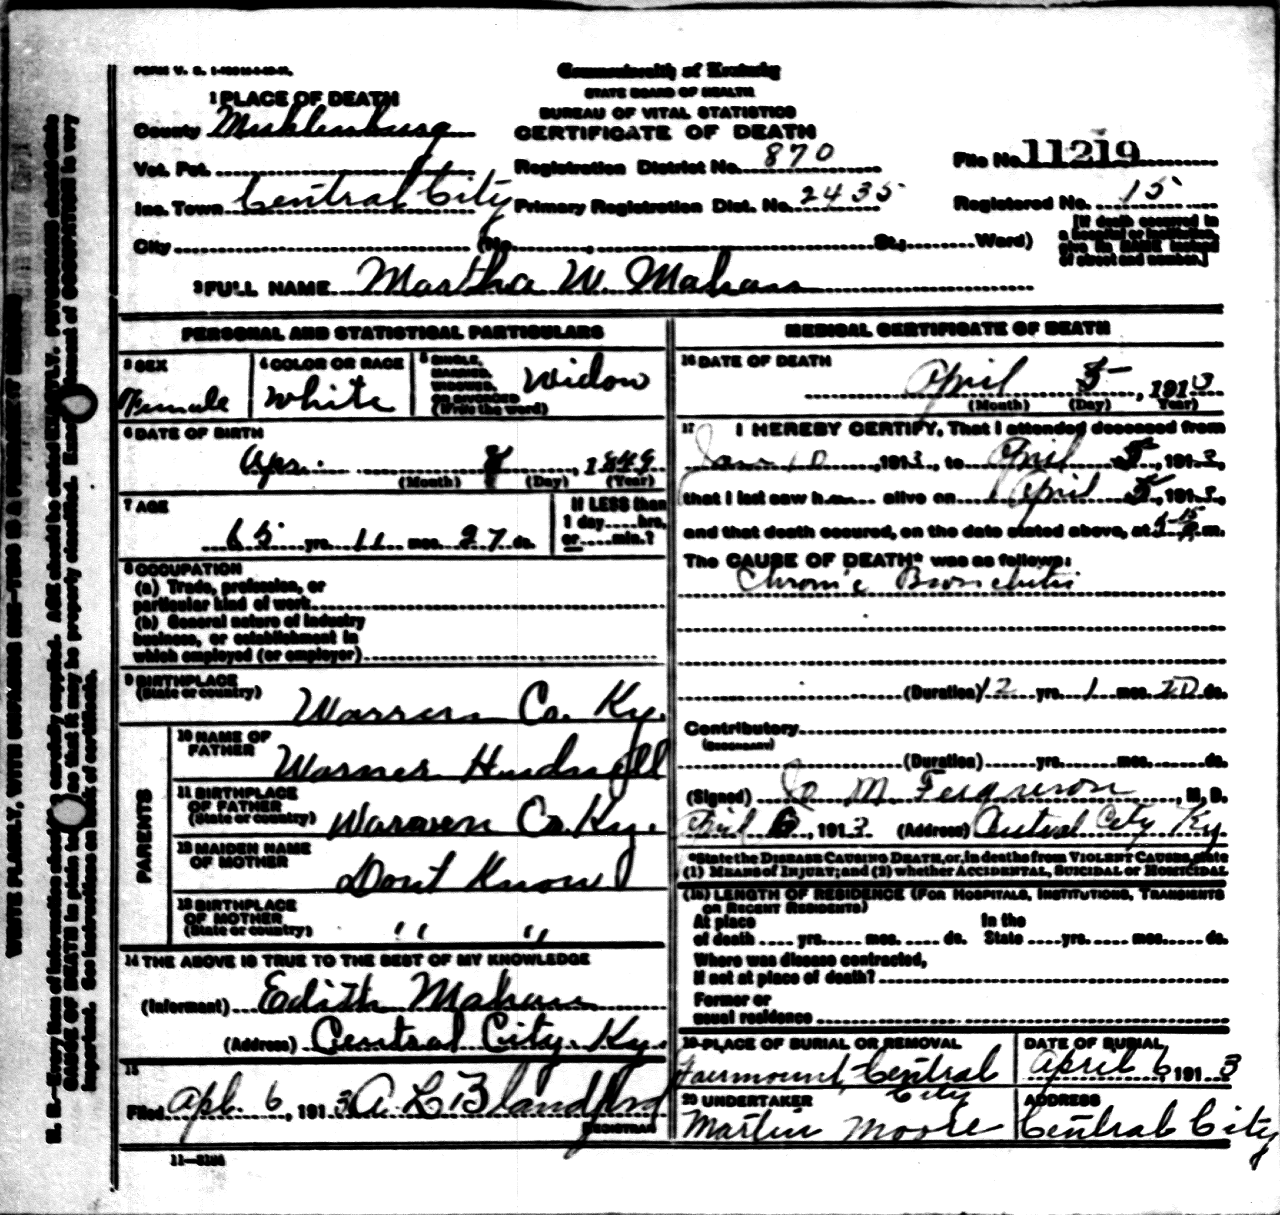 FORM V. S.
Commonwealth of Kentucky
STATE BOARD OF HEALTH
BUREAU OF VITAL STATISTICS
CERTIFICATE OF DEATH
1 PLACE OF DEATH
County Muhlenburg
Vot. Pct.
Registration District No. 870
File No. 11219
Inc. Town Central City
Primary Registration Dist. No. 2435
Registered No. 15
City (No. , St.; Ward)
[If death occurred in
a hospital or institution,
give its NAME instead
of street and number.]
2 FULL NAME Martha W. Mahan
PERSONAL AND STATISTICAL PARTICULARS
3 SEX
Female
4 COLOR OR RACE
White
5 SINGLE,
MARRIED,
WIDOWED,
OR DIVORCED
(Write the word)
Widow
6 DATE OF BIRTH
Apr. 8, 1849
(Month) (Day) (Year)
7 AGE
65 yrs. 11 mos. 27 ds.
If LESS than
1 day.....hrs.
or.....min.?
8 OCCUPATION
(a) Trade, profession, or
particular kind of work
(b) General nature of industry
business, or establishment in
which employed (or employer)
9 BIRTHPLACE
(State or country)
Warren Co. Ky.
PARENTS
10 NAME OF
FATHER
Warner Hudnall
11 BIRTHPLACE
OF FATHER
(State or country)
Warren Co. Ky.
12 MAIDEN NAME
OF MOTHER
Dont Know
13 BIRTHPLACE
OF MOTHER
(State or country)
" "
14 THE ABOVE IS TRUE TO THE BEST OF MY KNOWLEDGE
(Informant) Edith Mahan
(Address) Central City. Ky.
15
Filed Apl. 6, 1913 A L Blandford
REGISTRAR
11-3184
MEDICAL CERTIFICATE OF DEATH
16 DATE OF DEATH
April 5, 1913
(Month) (Day) (Year)
17 I HEREBY CERTIFY, That I attended deceased from
Jan 10, 1913, to April 5, 1913,
that I last saw h alive on April 5, 1913,
and that death occured, on the date stated above, at m.
The CAUSE OF DEATH* was as follows:
Chronic Bronchitis
(Duration) 12 yrs. 1 mos. 20 ds.
Contributory
(SECONDARY)
(Duration) yrs. mos. ds.
(Signed) Jo M Ferguson, M. D.
April 6, 1913 (Address) Central City Ky
*State the DISEASE CAUSING DEATH, or, in deaths from VIOLENT CAUSES, state
(1) MEANS OF INJURY; and (2) whether ACCIDENTAL, SUICIDAL or HOMICIDAL
(18) LENGTH OF RESIDENCE (FOR HOSPITALS, INSTITUTIONS, TRANSIENTS
OR RECENT RESIDENTS)
At place
of death yrs. mos. ds.
In the
State yrs. mos. ds.
Where was disease contracted,
if not at place of death?
Former or
usual residence
19 PLACE OF BURIAL OR REMOVAL
Fairmount, Central City
DATE OF BURIAL
April 6, 1913
20 UNDERTAKER
Martin Moore
ADDRESS
Central City
WRITE PLAINLY, WITH UNFADING INK—THIS IS A PERMANENT RECORD
N. B.—Every item of information should be carefully supplied. AGE should be stated EXACTLY. PHYSICIANS should state
CAUSE OF DEATH in plain terms, so that it may be properly classified. Exact statement of OCCUPATION is very
important. See instructions on back of certificate.